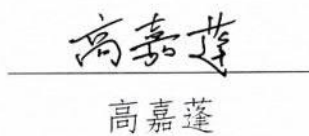 高嘉蓬
高嘉蓬